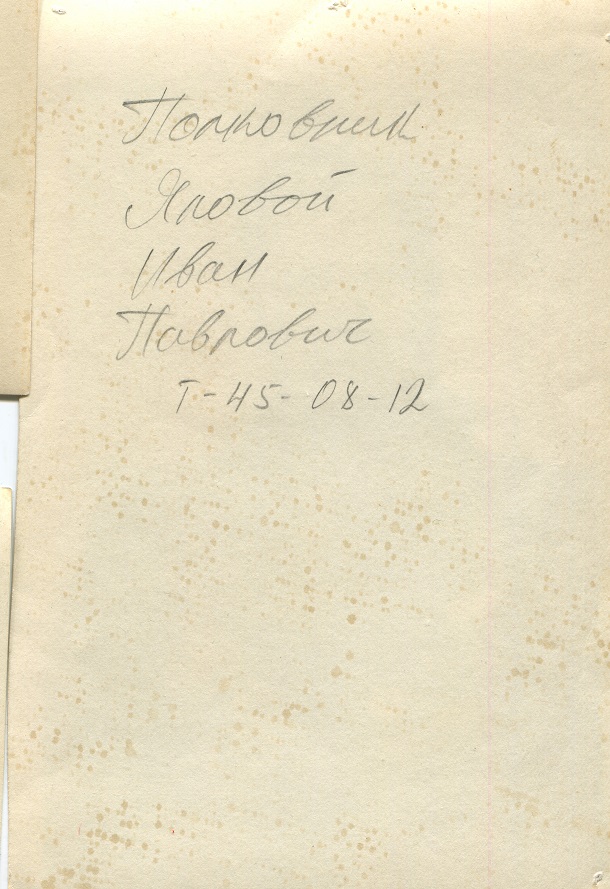 Полковник
Яровой
Иван
Павлович
Т-45-08-12